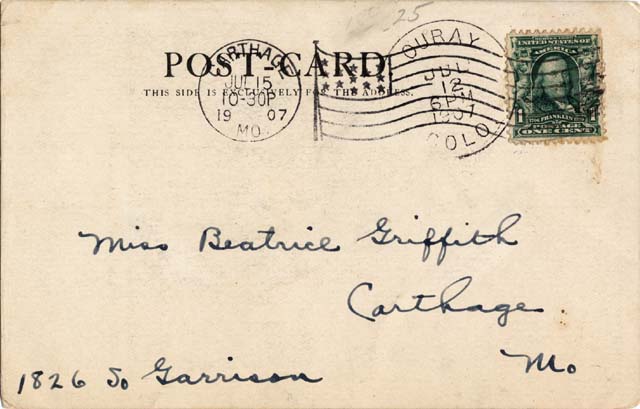 25
POST-CARD.
THIS SIDE IS EXCLUSIVELY FOR THE ADDRESS.
CARTHAGE
JUL 15
10-30P
19 07
MO.
OURAY
JUL
12
6 PM
1907
COLO.
UNITED STATES OF
AMERICA
FRANKLIN
POSTAGE
1 ONE CENT 1
Miss Beatrice Griffith
Carthage
Mo
1826 So Garrison